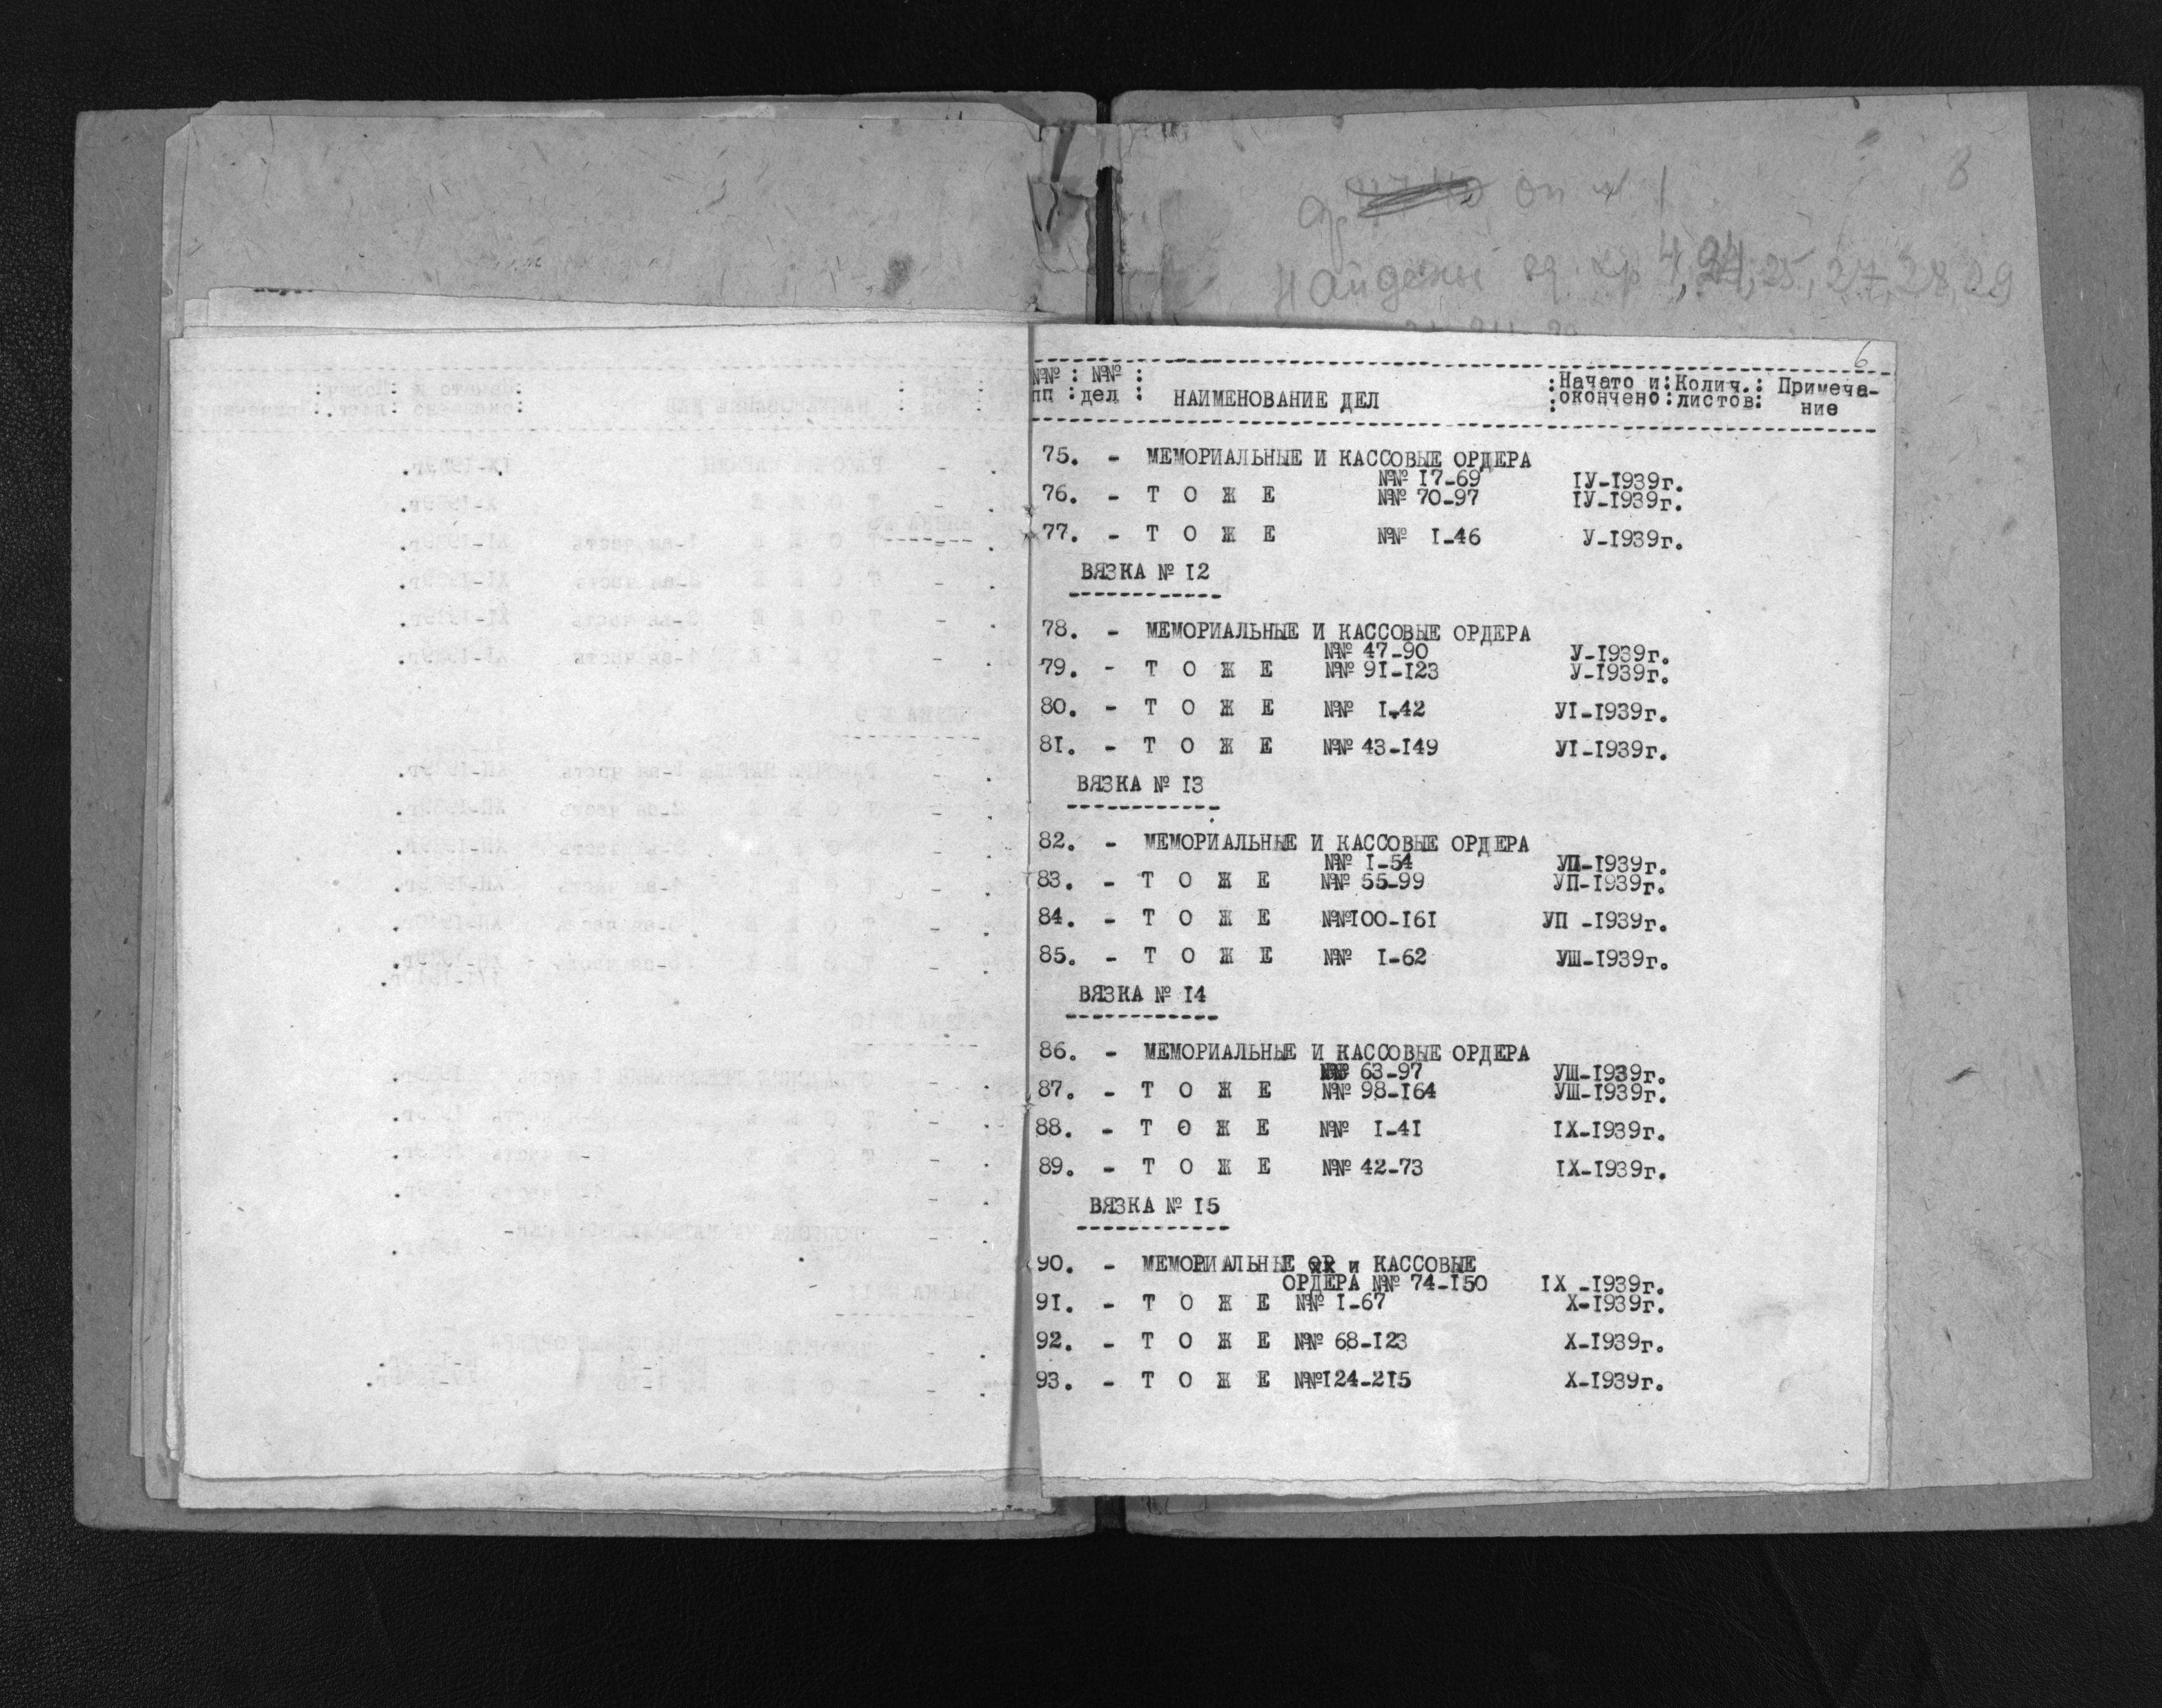 8
оп № 1
Найдены ед. хр 4, 24, 25, 27, 28, 29
6
№№ : №№ : НАИМЕНОВАНИЕ ДЕЛ :Начато и:Колич.: Примеча-
пп :дел : :окончено:листов: ние
75. - МЕМОРИАЛЬНЫЕ И КАССОВЫЕ ОРДЕРА
№№ I7-69 IУ-I939г.
76. - Т О Ж Е №№ 70-97 IУ-I939г.
77. - Т О Ж Е №№ I-46 У-I939г.
ВЯЗКА № I2
78. - МЕМОРИАЛЬНЫЕ И КАССОВЫЕ ОРДЕРА
№№ 47-90 У-I939г.
79. - Т О Ж Е №№ 9I-I23 У-I939г.
80. - Т О Ж Е №№ I-42 УI-I939г.
8I. - Т О Ж Е №№ 43-I49 УI-I939г.
ВЯЗКА № I3
82. - МЕМОРИАЛЬНЫЕ И КАССОВЫЕ ОРДЕРА
№№ I-54 УП-I939г.
83. - Т О Ж Е №№ 55-99 УП-I939г.
84. - Т О Ж Е №№I00-I6I УП -I939г.
85. - Т О Ж Е №№ I-62 УШ-I939г.
ВЯЗКА № I4
86. - МЕМОРИАЛЬНЫЕ И КАССОВЫЕ ОРДЕРА
№№ 63-97 УШ-I939г.
87. - Т О Ж Е №№ 98-I64 УШ-I939г.
88. - Т О Ж Е №№ I-4I IX-I939г.
89. - Т О Ж Е №№ 42-73 IX-I939г.
ВЯЗКА № I5
90. - МЕМОРИАЛЬНЫЕ и КАССОВЫЕ
ОРДЕРА №№ 74-I50 IX -I939г.
9I. - Т О Ж Е №№ I-67 X-I939г.
92. - Т О Ж Е №№ 68-I23 X-I939г.
93. - Т О Ж Е №№I24-2I5 X-I939г.